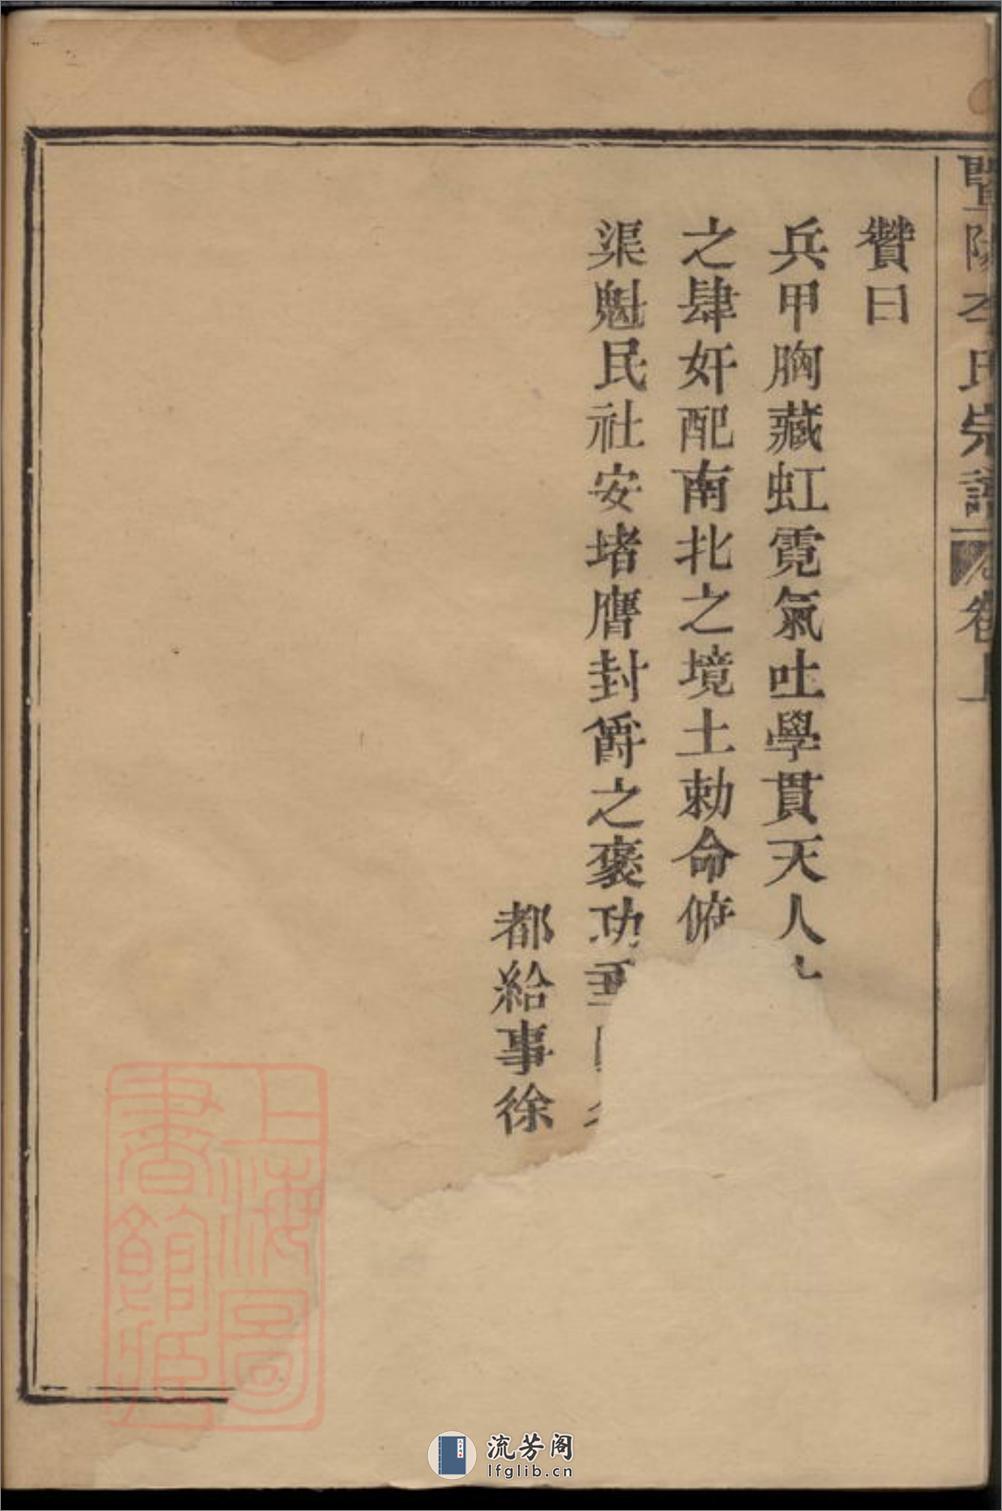 暨陽李氏宗譜 卷上
贊曰
兵甲胸藏虹霓氣吐學貫天人
之肆奸配南北之境土勅命俯
渠魁民社安堵膺封爵之褒功重
都給事徐
上海圖書館藏
流芳阁
lfglib.cn